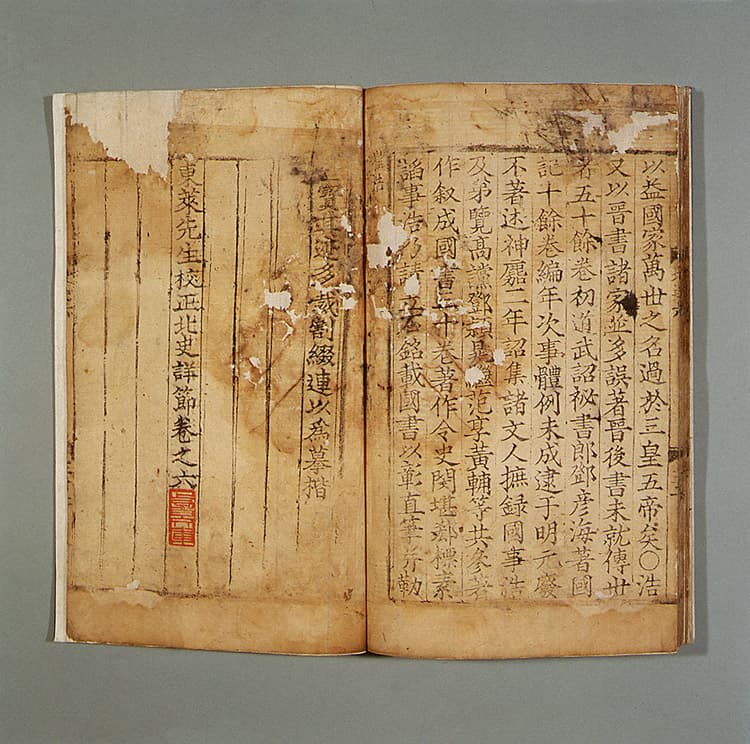 以益國家萬世之名過於三皇五帝矣〇浩
又以晉書諸家並多誤著晉後書未就傳世
者五十餘卷初道武詔祕書郎鄧彦海著國
記十餘卷編年次事體例未成逮于明元廢
不著述神䴥二年詔集諸文人摭録國事浩
及弟覽高讜鄧穎晁繼范享黃輔等共參著
作叙成國書三十卷著作令史閔堪郄標素
諂事浩乃請立石銘載國書以彰直筆并勒
寶其迹多裁割綴連以爲摹楷
東萊先生校正北史詳節卷之六